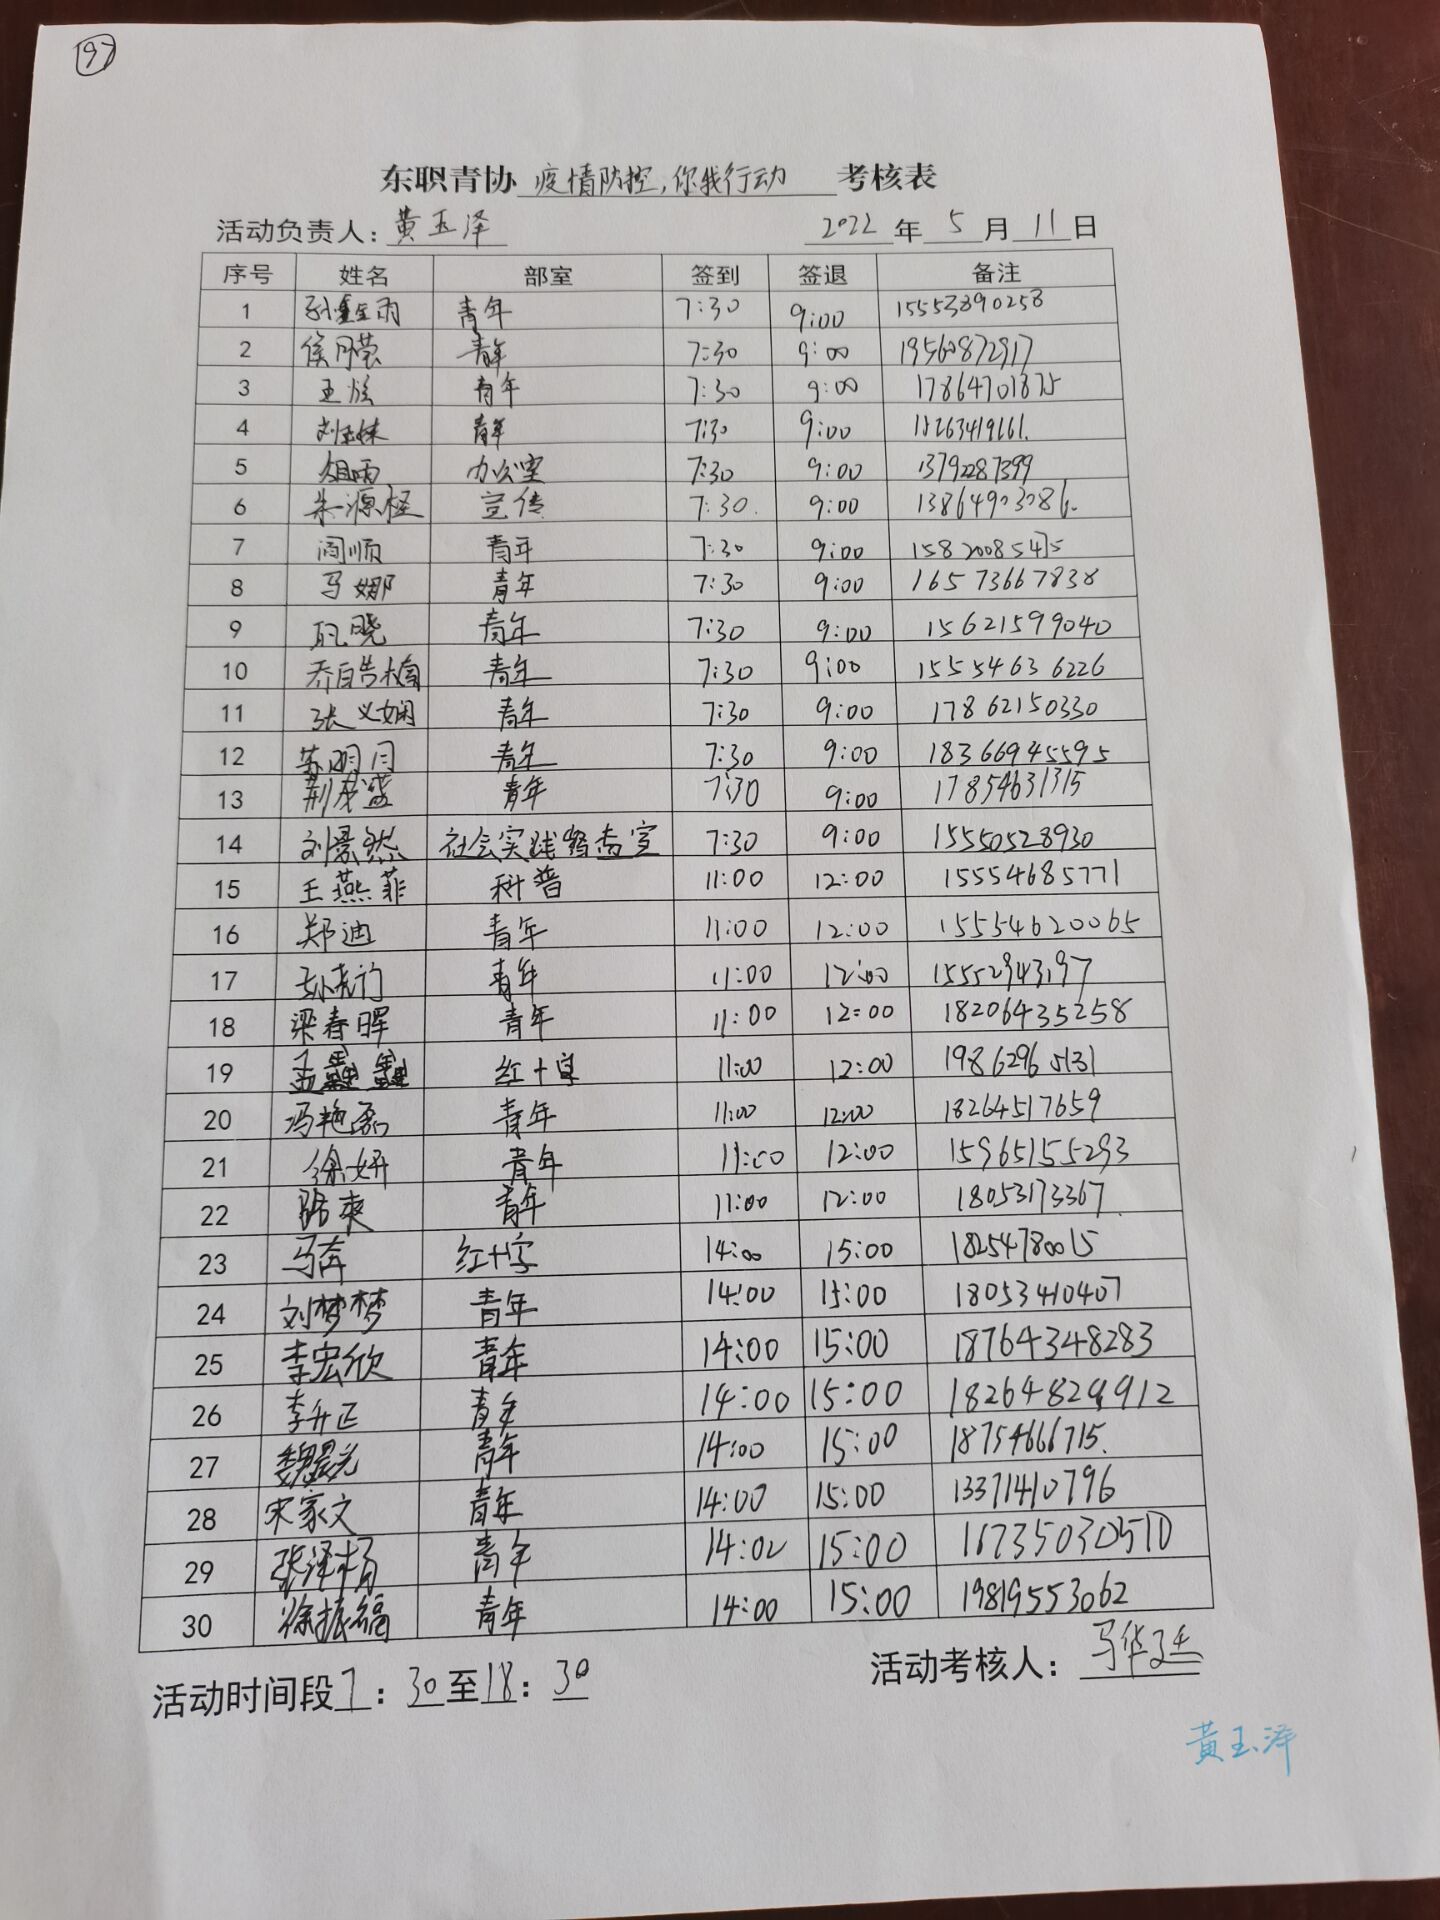 97
东职青协 疫情防控,你我行动 考核表
活动负责人: 黄玉泽 2022 年 5 月 11 日
序号 姓名 部室 签到 签退 备注
1 青年 7:30 9:00 15553890258
2 侯月莹 青年 7:30 9:00 19560872917
3 青年 7:30 9:00 17864701875
4 青年 7:30 9:00 15263419661.
5 办公室 7:30 9:00 13792287399
6 宣传 7:30. 9:00 13864903086.
7 阎顺 青年 7:30 9:00 15820085475
8 马娜 青年 7:30 9:00 16573667838
9 晓 青年 7:30 9:00 15621599040
10 青年 7:30 9:00 15554636226
11 张义娴 青年 7:30 9:00 17862150330
12 苏明月 青年 7:30 9:00 18366945595
13 荆茂盛 青年 7:30 9:00 17854631315
14 刘景然 社会实践 室 7:30 9:00 15550528930
15 王燕菲 科普 11:00 12:00 15554685771
16 郑迪 青年 11:00 12:00 15554620065
17 青年 11:00 12:00 15552943197
18 梁春晖 青年 11:00 12:00 18206435258
19 孟鑫鑫 红十字 11:00 12:00 19862965131
20 冯艳磊 青年 11:00 12:00 18264517659
21 徐妍 青年 11:00 12:00 15965155293
22 爽 青年 11:00 12:00 18053173367.
23 马奔 红十字 14:00 15:00 18254780015
24 刘梦梦 青年 14:00 15:00 18053410407
25 李宏欣 青年 14:00 15:00 18764348283
26 李升正 青年 14:00 15:00 18264829912
27 青年 14:00 15:00 18754666715.
28 宋家文 青年 14:00 15:00 13371410796
29 张泽杨 青年 14:02 15:00 16735030510
30 徐振福 青年 14:00 15:00 19819553062
活动时间段 7:30至18:30 活动考核人: 马华
黄玉泽